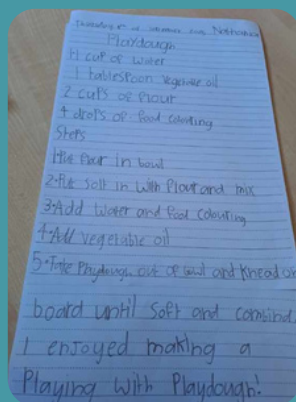 Playdough
1 cup of water
1 tablespoon vegetable oil
2 cups of flour
4 drops of food colouring
Steps
1 Put flour in bowl
2. Put Solt in with flour and mix
3. Add water and food colouring
4. Add vegetable oil
5. Take Playdough out of bowl and Knead on
board until Soft and combind.
I enjoyed making a
Playing with Playdough!